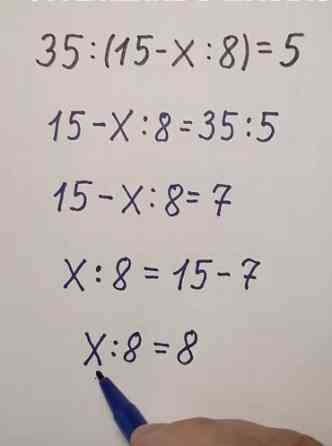 35:(15-x:8)=5
15-x:8=35:5
15-x:8=7
x:8=15-7
x:8=8